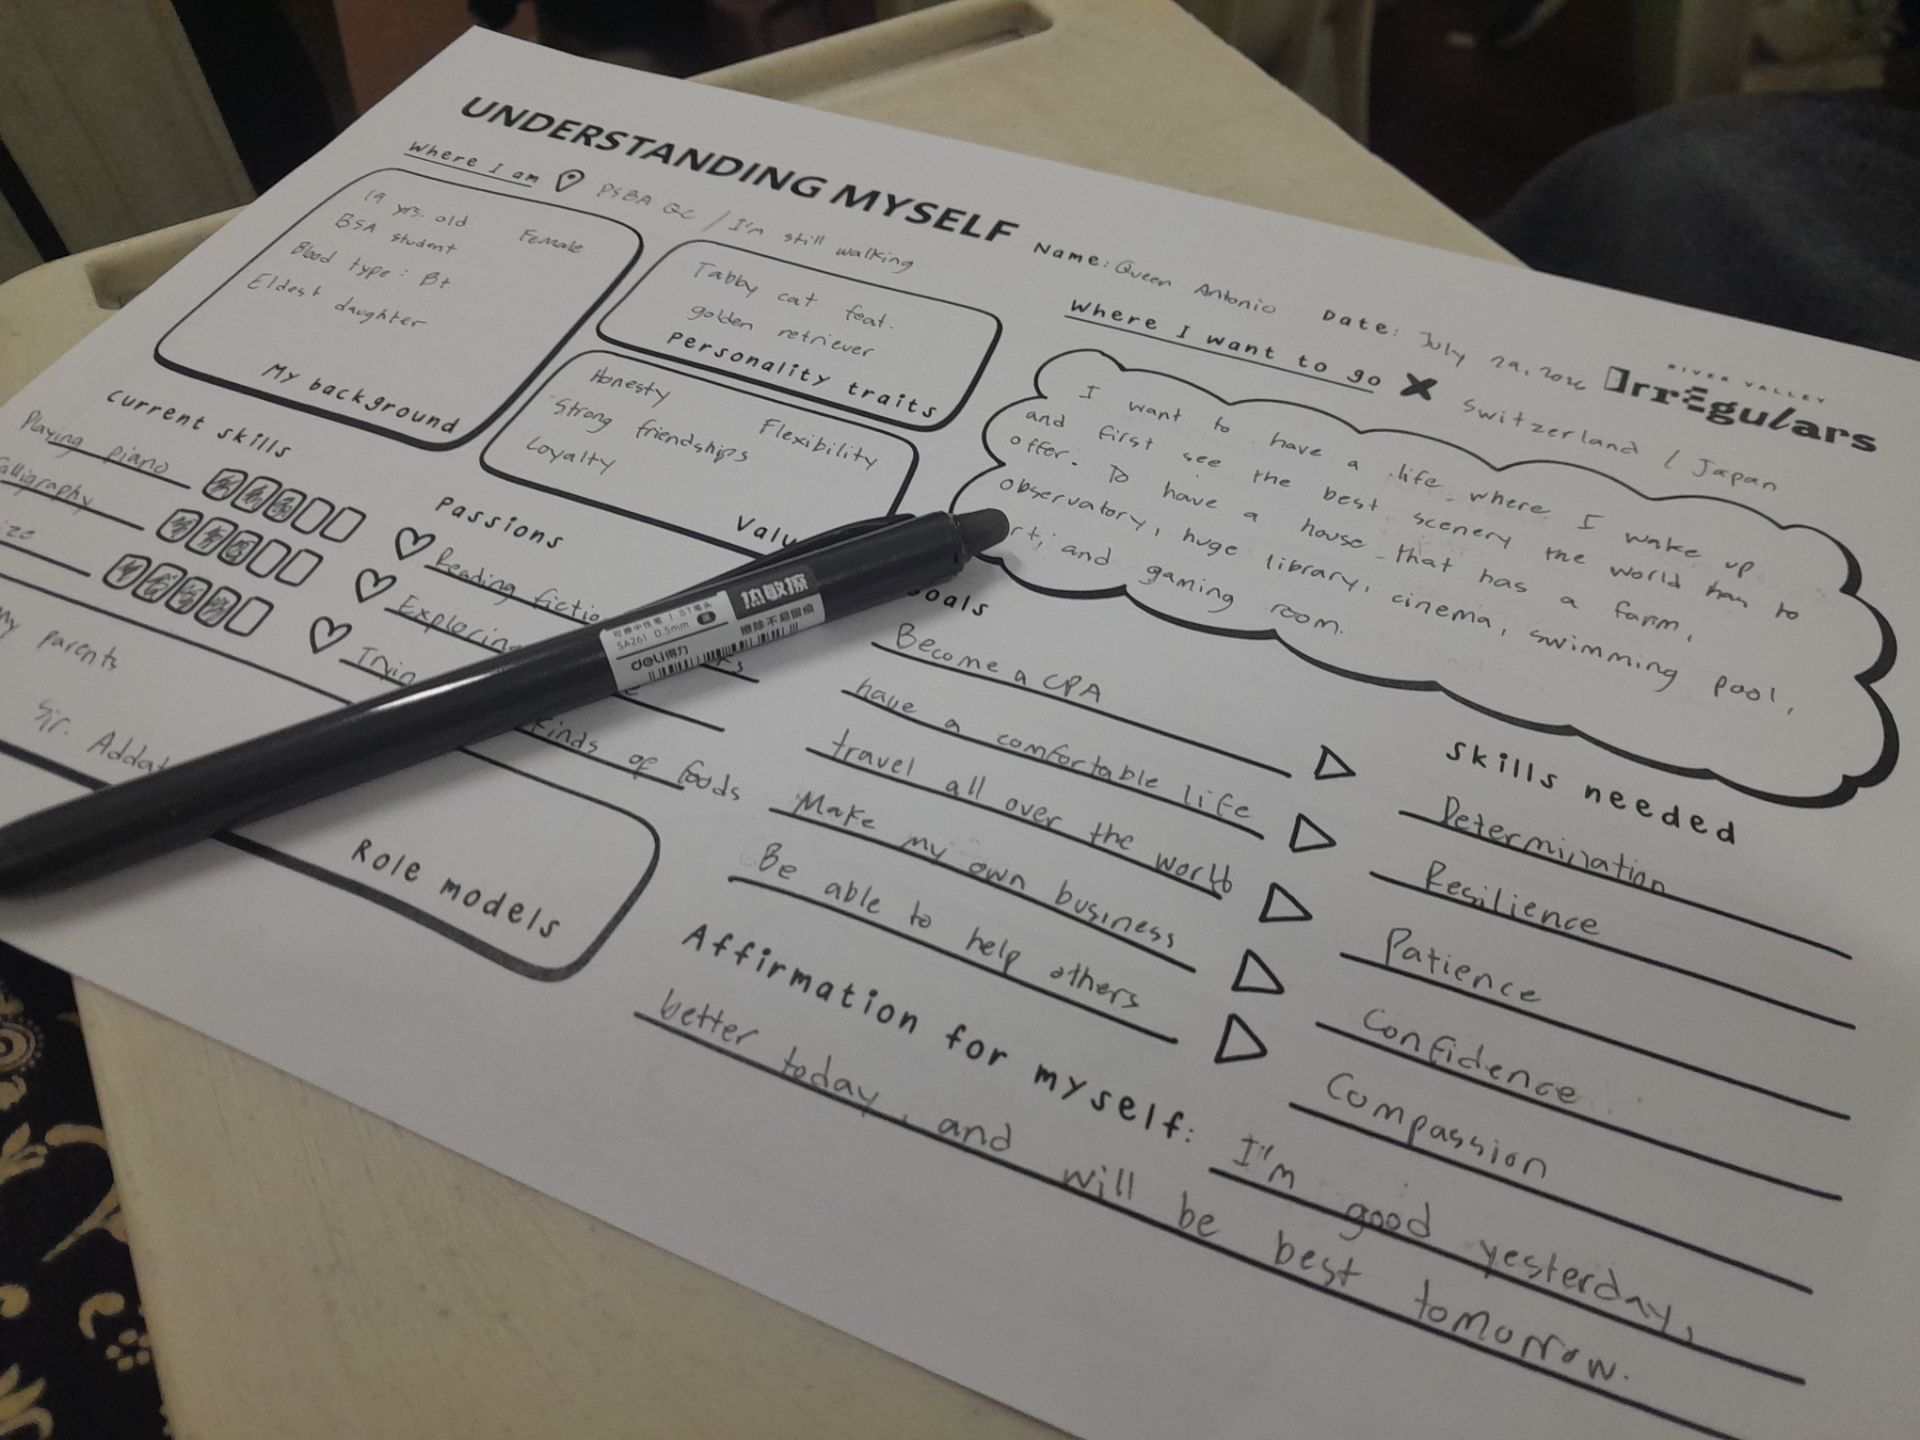 UNDERSTANDING MYSELF
Name: Queen Antonio Date: July 29, 2026
RIVER VALLEY
Irregulars
Where I am PSBA QC / I'm still walking
19 yrs. old Female
BSA student
Blood type: B+
Eldest daughter
My background
Tabby cat feat.
golden retriever
Personality traits
Honesty Flexibility
Strong friendships
Loyalty
Valu
Current skills
Playing piano
Calligraphy
Passions
Reading fictio
Exploring
Tryin
kinds of foods
My parents
Sir. Addat
Role models
Where I want to go Switzerland / Japan
I want to have a life where I wake up
and first see the best scenery the world has to
offer. To have a house that has a farm,
observatory, huge library, cinema, swimming pool,
and gaming room.
Goals
Become a CPA
have a comfortable life
travel all over the world
Make my own business
Be able to help others
Skills needed
Determination
Resilience
Patience
Confidence
Compassion
Affirmation for myself: I'm good yesterday,
better today, and will be best tomorrow.
热敏擦
可擦中性笔 ST笔头
SA261 0.5mm 黑
擦除不易留痕
deli得力